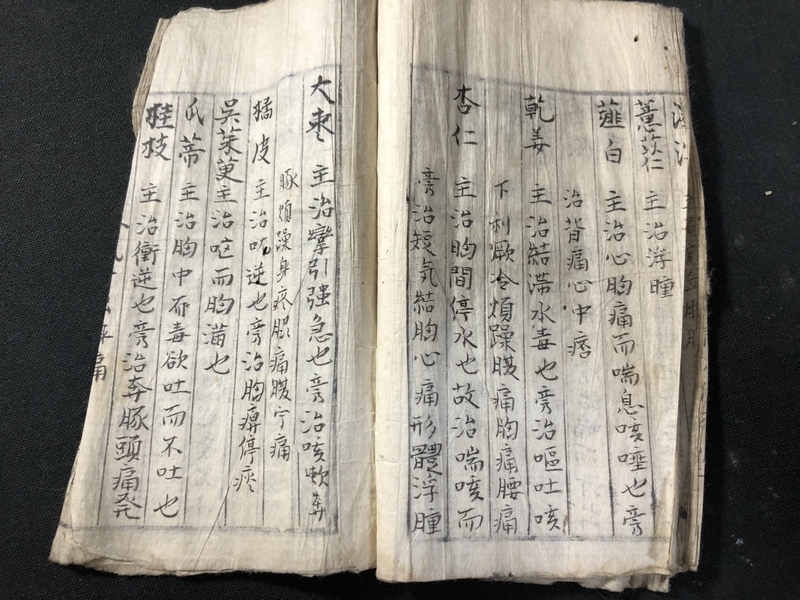 薏苡仁 主治浮腫
薤白 主治心胸痛而喘息咳唾也旁
治背痛心中痞
乾姜 主治結滞水毒也旁治嘔吐咳
下利厥冷煩躁腹痛胸痛腰痛
杏仁 主治胸間停水也故治喘咳而
旁治短気結胸心痛形體浮腫
大棗 主治攣引强急也旁治咳嗽奔
豚煩躁身疼脇痛腹中痛
橘皮 主治吃逆也旁治胸痺停痰
吳茱萸主治嘔而胸満也
瓜蒂 主治胸中有毒欲吐而不吐也
桂枝 主治衝逆也旁治奔豚頭痛発